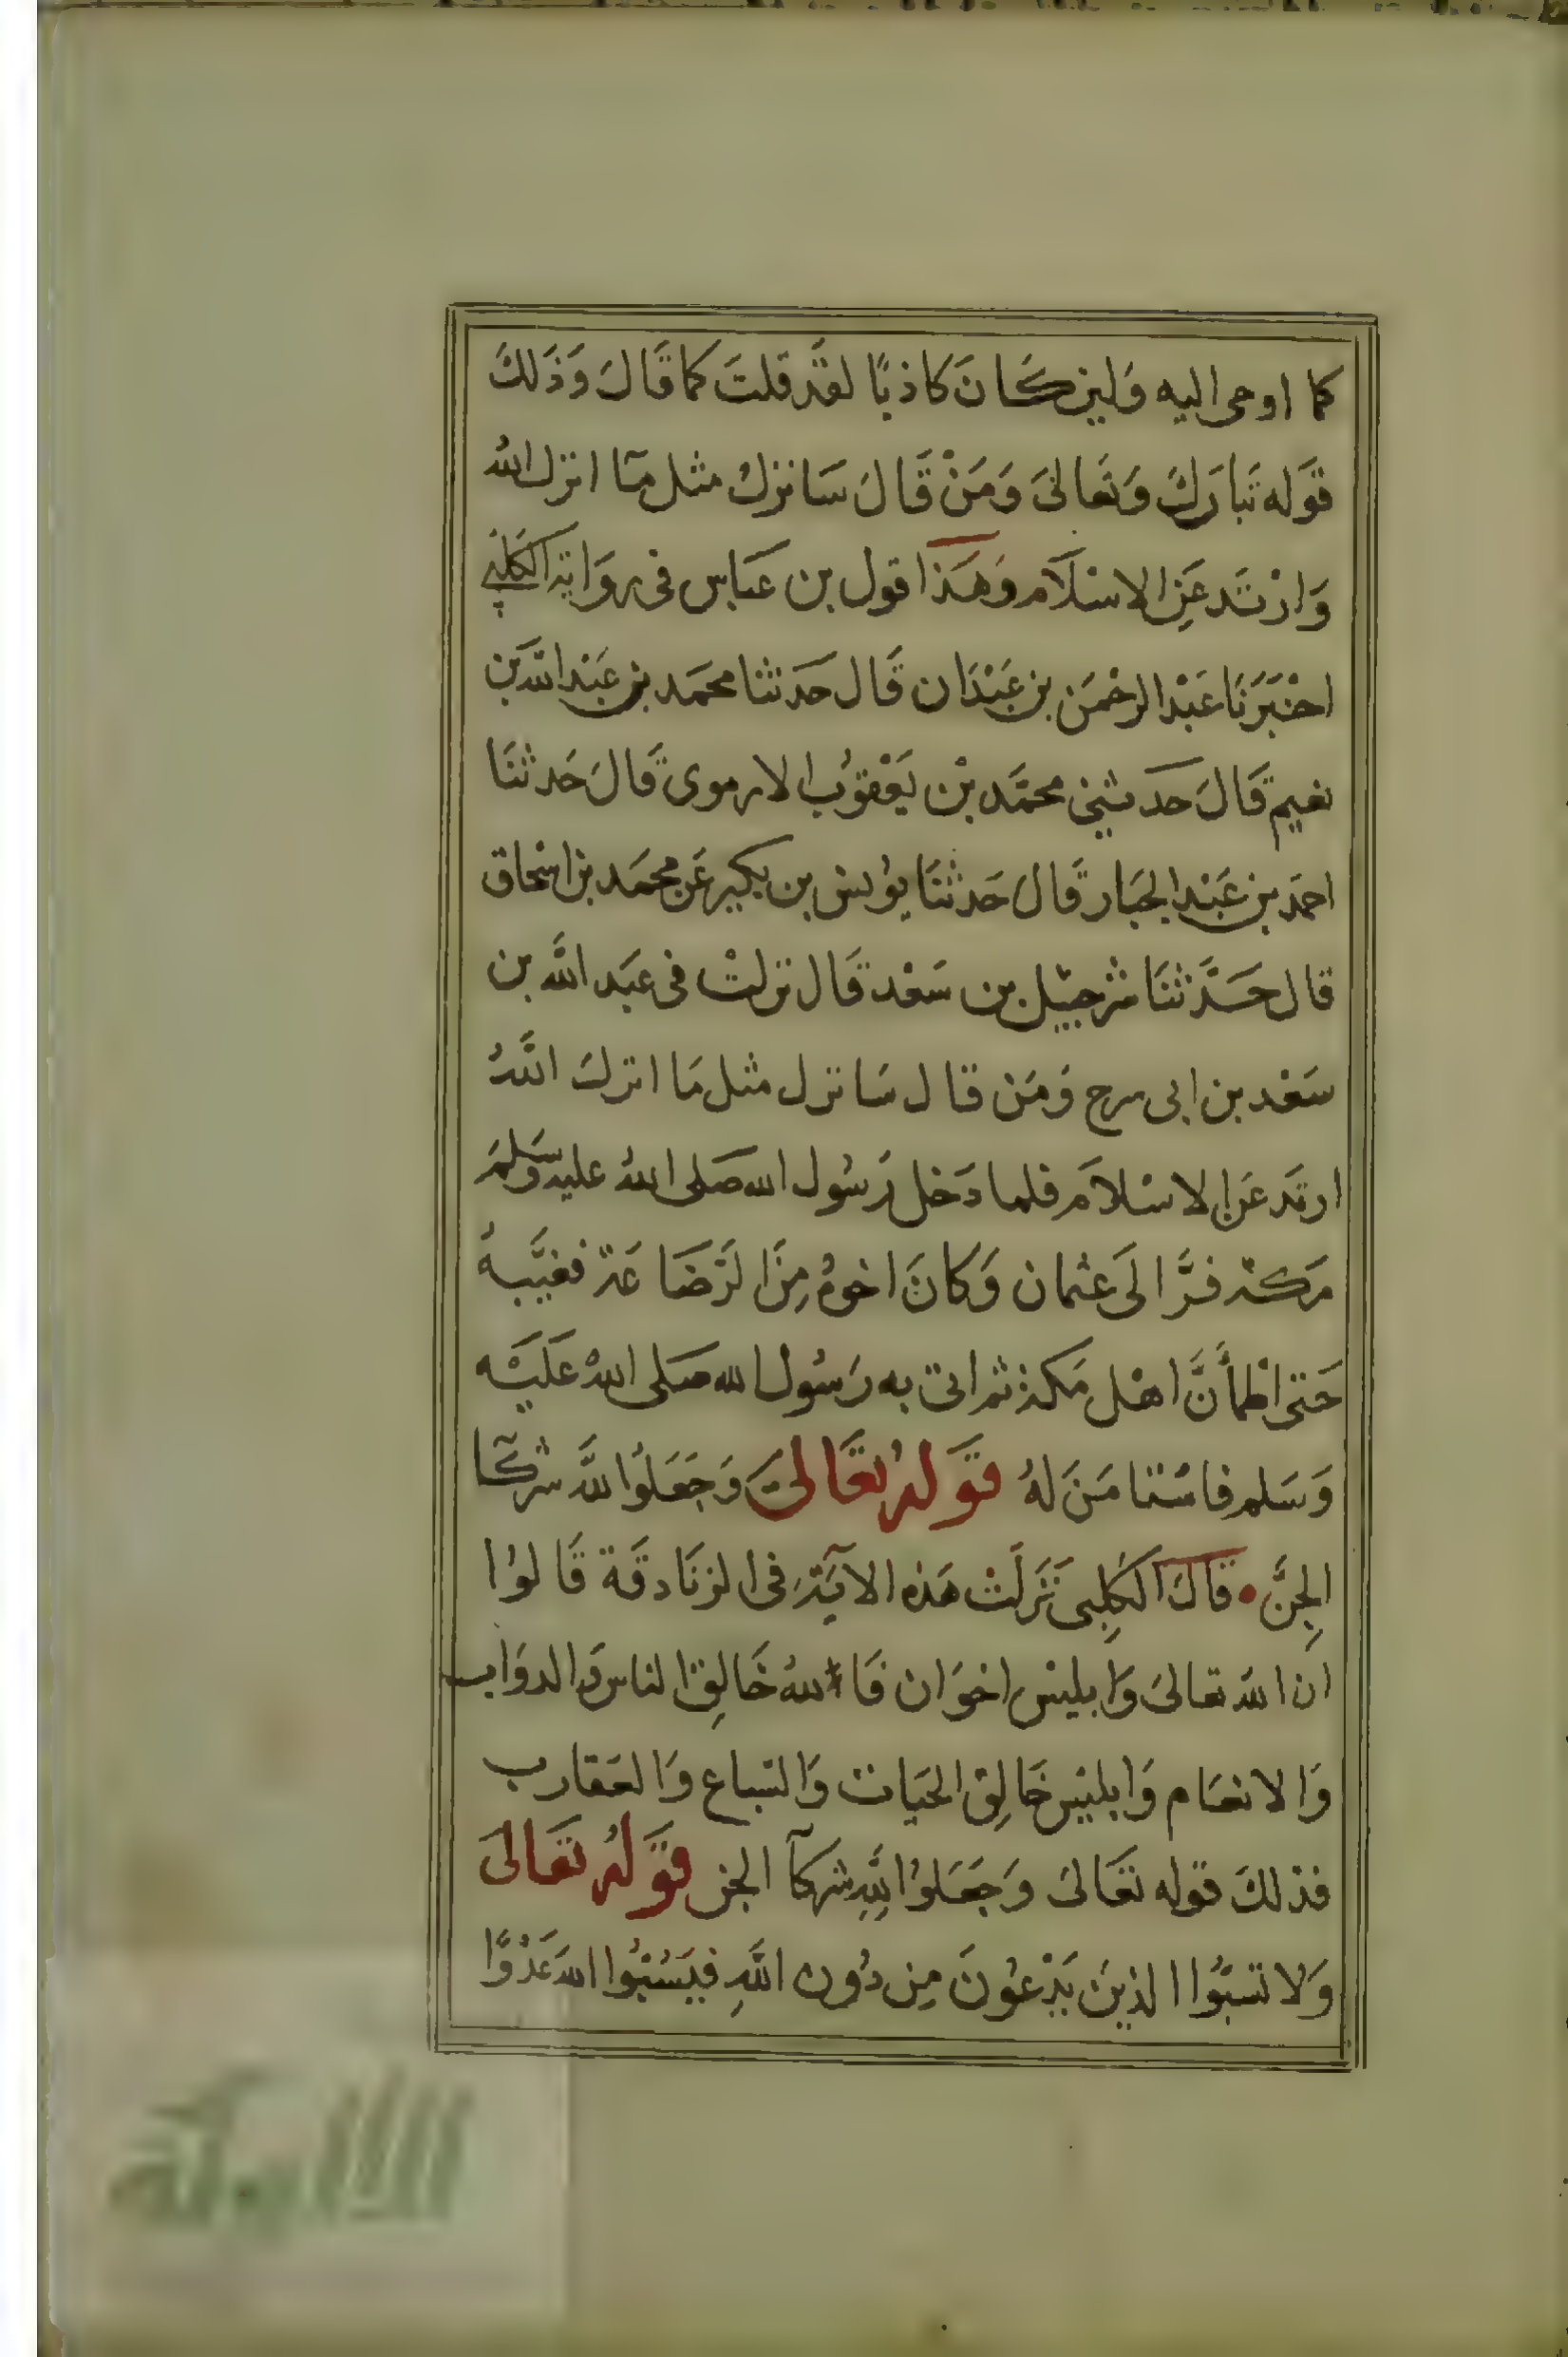 كما اوحى اليه وَلين كَانَ كاذبًا لقَد قلتَ كما قَالَ وَذَلكَ
قَوله تبَارَكَ وَتعَالىَ وَمَنْ قَالَ سَانزلُ مثل مَا انزل اللهُ
وَارْتَد عَنِ الاسْلاَم وَهَذا قول بن عَبَاس فى روَاية الكَلبي
اخْبَرَنَا عَبْد الرحْمَن بن عَبْدَان قَال حَدثنا محمَد بن عَبْد اللّه بن
نعيم قَالَ حَدثني محمَّد بْن يَعْقوُب الارموى قَالَ حَدثنَا
احمَد بن عَبْد الجَبار قَال حَدثنَا يوُنس بن بكير عَن محمَد بن اسْحاق
قال حَدَّثنَا شرحبيل بن سَعْد قَال نزلتْ فى عَبد اللَّه بن
سَعْد بن ابى سرح وَمَن قال سَانزل مثل مَا انزلَ اللَّهُ
ارتدَ عَن الاسْلاَم فلما دَخل رَسُول الله صَلى اللهُ عليه وَسَلمَ
مَكة فرَّ الَى عثمان وَكانَ اخوهُ مِنَ الرَضَاعَة فغيَّبهُ
حَتى اطْمأَنَّ اهْل مَكة ثم اتى به رَسُول الله صَلى اللهُ عَليَْه
وَسَلم فاسْتامَنَ لهُ قَولهُ تعَالىَ وَجَعَلوُا للَّه شركآ
الجِنَّ • قالَ الكَلِبى نَزَلَتْ هَذه الآيَة فى الزنَادقَة قَالوُا
ان اللهَ تعَالىَ وَابليْس اخوَان فَالله خَالِق الناس وَالدوَاب
وَالانعَام وَابليْس خَالِق الحَيات وَالسبَاع وَالعَقارب
فذلكَ قوله تعَالىَ وَجَعَلوُا للَّهِ شركآ الجن قَولهُ تعَالىَ
وَلا تسبُّوا الذينَ يَدْعُونَ مِن دُون اللَّهِ فيَسُبُّوا اللهَ عَدْوًا
الألوكة